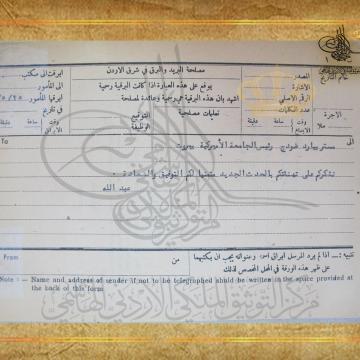 مصلحة البريد والبرق في شرق الاردن
يوقع على هذه العبارة اذا كانت البرقية رسمية
اشهد بان هذه البرقية هي رسمية وعائدة لمصلحة
تعليمات مصلحية
التوقيع
الوظيفة
ختم التاريخ
المصدر
الرقم الاصلي
عدد الكلمات
الاجرة
ملا
وقت
ساعة
دقيقة
ابرقت الى مكتب
الى المأمور
ابرقها المأمور
في تاريخ
وقت
ساعة
دقيقة
To
الى
مستر بيارد ضودج رئيس الجامعة الأميركية بيروت
نشكركم على تهنئتكم بالحدث الجديد متمنيا لكم التوفيق والسعادة
عبد الله
From
من
تنبيه :— اذا لم يرد المرسل ابراق اسمه وعنوانه يجب ان يكتبهما
على ظهر هذه الورقة في المحل المخصص لذلك
Note :— Name and address of sender if not to be telegraphed should be written in the space provided at
the back of this form
مركز التوثيق الملكي الأردني الهاشمي